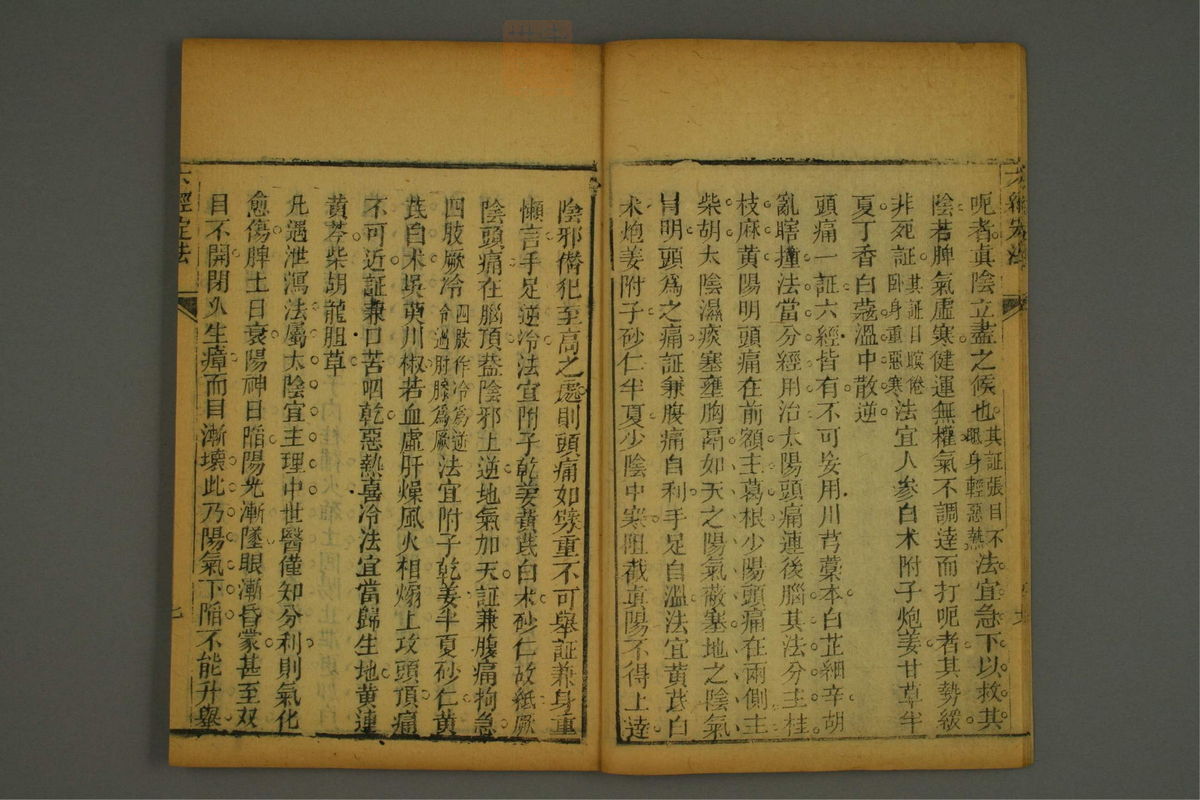 六經定法
呃者真陰立盡之候也其証張目不眠身輕惡熱法宜急下以救其
陰若脾氣虛寒健運無權氣不調達而打呃者其勢緩
非死証其証目瞑倦臥身重惡寒法宜人參白朮附子炮姜甘草半
夏丁香白蔻溫中散逆
頭痛一証六經皆有不可妄用川芎藁本白芷細辛胡
亂瞎撞法當分經用治太陽頭痛連後腦其法分主桂
枝麻黃陽明頭痛在前額主葛根少陽頭痛在兩側主
柴胡太陰濕痰塞壅胸鬲如天之陽氣蔽塞地之陰氣
冒明頭爲之痛証兼腹痛自利手足自溫法宜黃芪白
朮炮姜附子砂仁半夏少陰中寒阻截真陽不得上達
陰邪僭犯至高之處則頭痛如䂮重不可舉証兼身重
懶言手足逆冷法宜附子乾姜黃芪白朮砂仁故紙厥
陰頭痛在腦頂葢陰邪上逆地氣加天証兼腹痛拘急
四肢厥冷四肢作冷爲逆冷過肘膝爲厥法宜附子乾姜半夏砂仁黃
芪白朮吳萸川椒若血虛肝燥風火相煽上攻頭頂痛
不可近証兼口苦咽乾惡熱喜冷法宜當歸生地黃連
黃芩柴胡龍胆草
凡遇泄瀉法屬太陰宜主理中世醫僅知分利則氣化
愈傷脾土日衰陽神日陷陽光漸墜眼漸昏蒙甚至双
目不開閉久生瘴而目漸壞此乃陽氣下陷不能升舉
六經定法
七